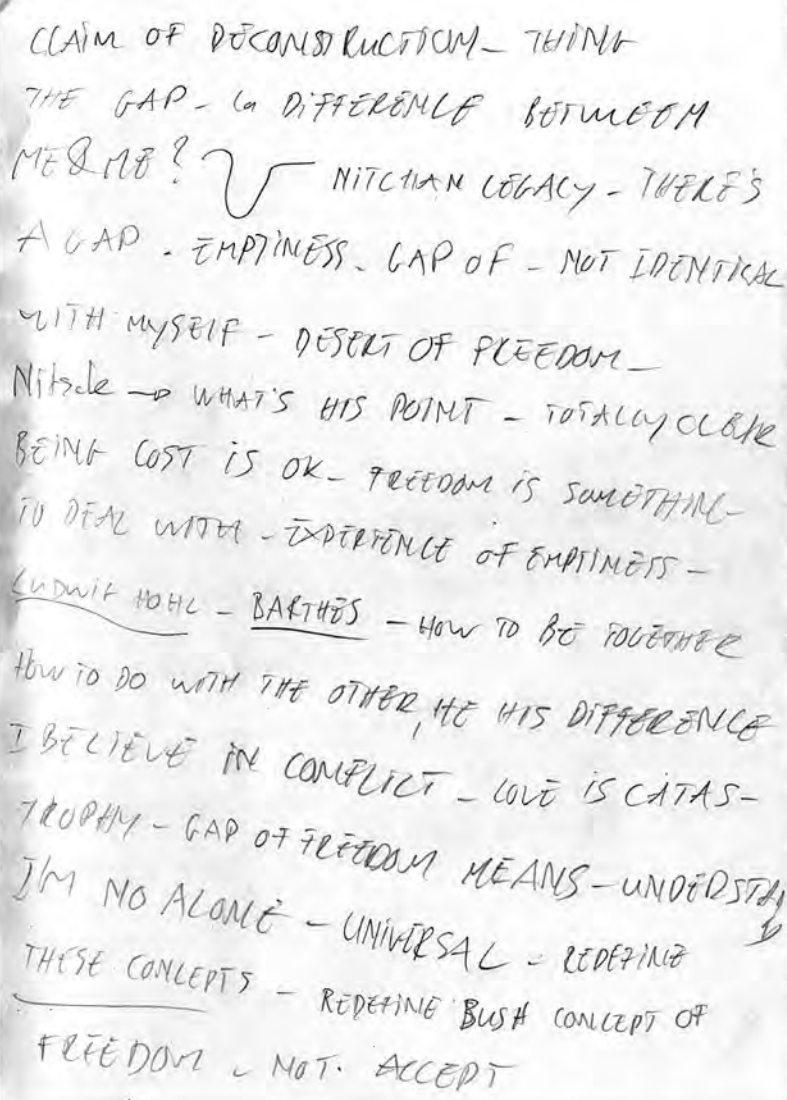 CLAIM OF DECONSTRUCTION - THING
THE GAP - La DIFFERENCE BETWEEN
ME & ME?    NITCHAN LEGACY - THERE'S
A GAP - EMPTINESS - GAP OF - NOT IDENTICAL
WITH MYSELF - DESERT OF FREEDOM -
Nitsche → WHAT'S HIS POINT - TOTALLY CLEAR
BEING LOST IS OK - FREEDOM IS SOMETHING
TO DEAL WITH - EXPERIENCE OF EMPTINESS -
LUDWIG HOHL - BARTHES - HOW TO BE TOGETHER
HOW TO DO WITH THE OTHER, HE HIS DIFFERENCE
I BELIEVE IN CONFLICT - LOVE IS CATAS-
TROPHY - GAP OF FREEDOM MEANS - UNDERSTAND
I'M NO ALONE - UNIVERSAL - REDEFINE
THESE CONCEPTS - REDEFINE BUSH CONCEPT OF
FREEDOM - NOT. ACCEPT